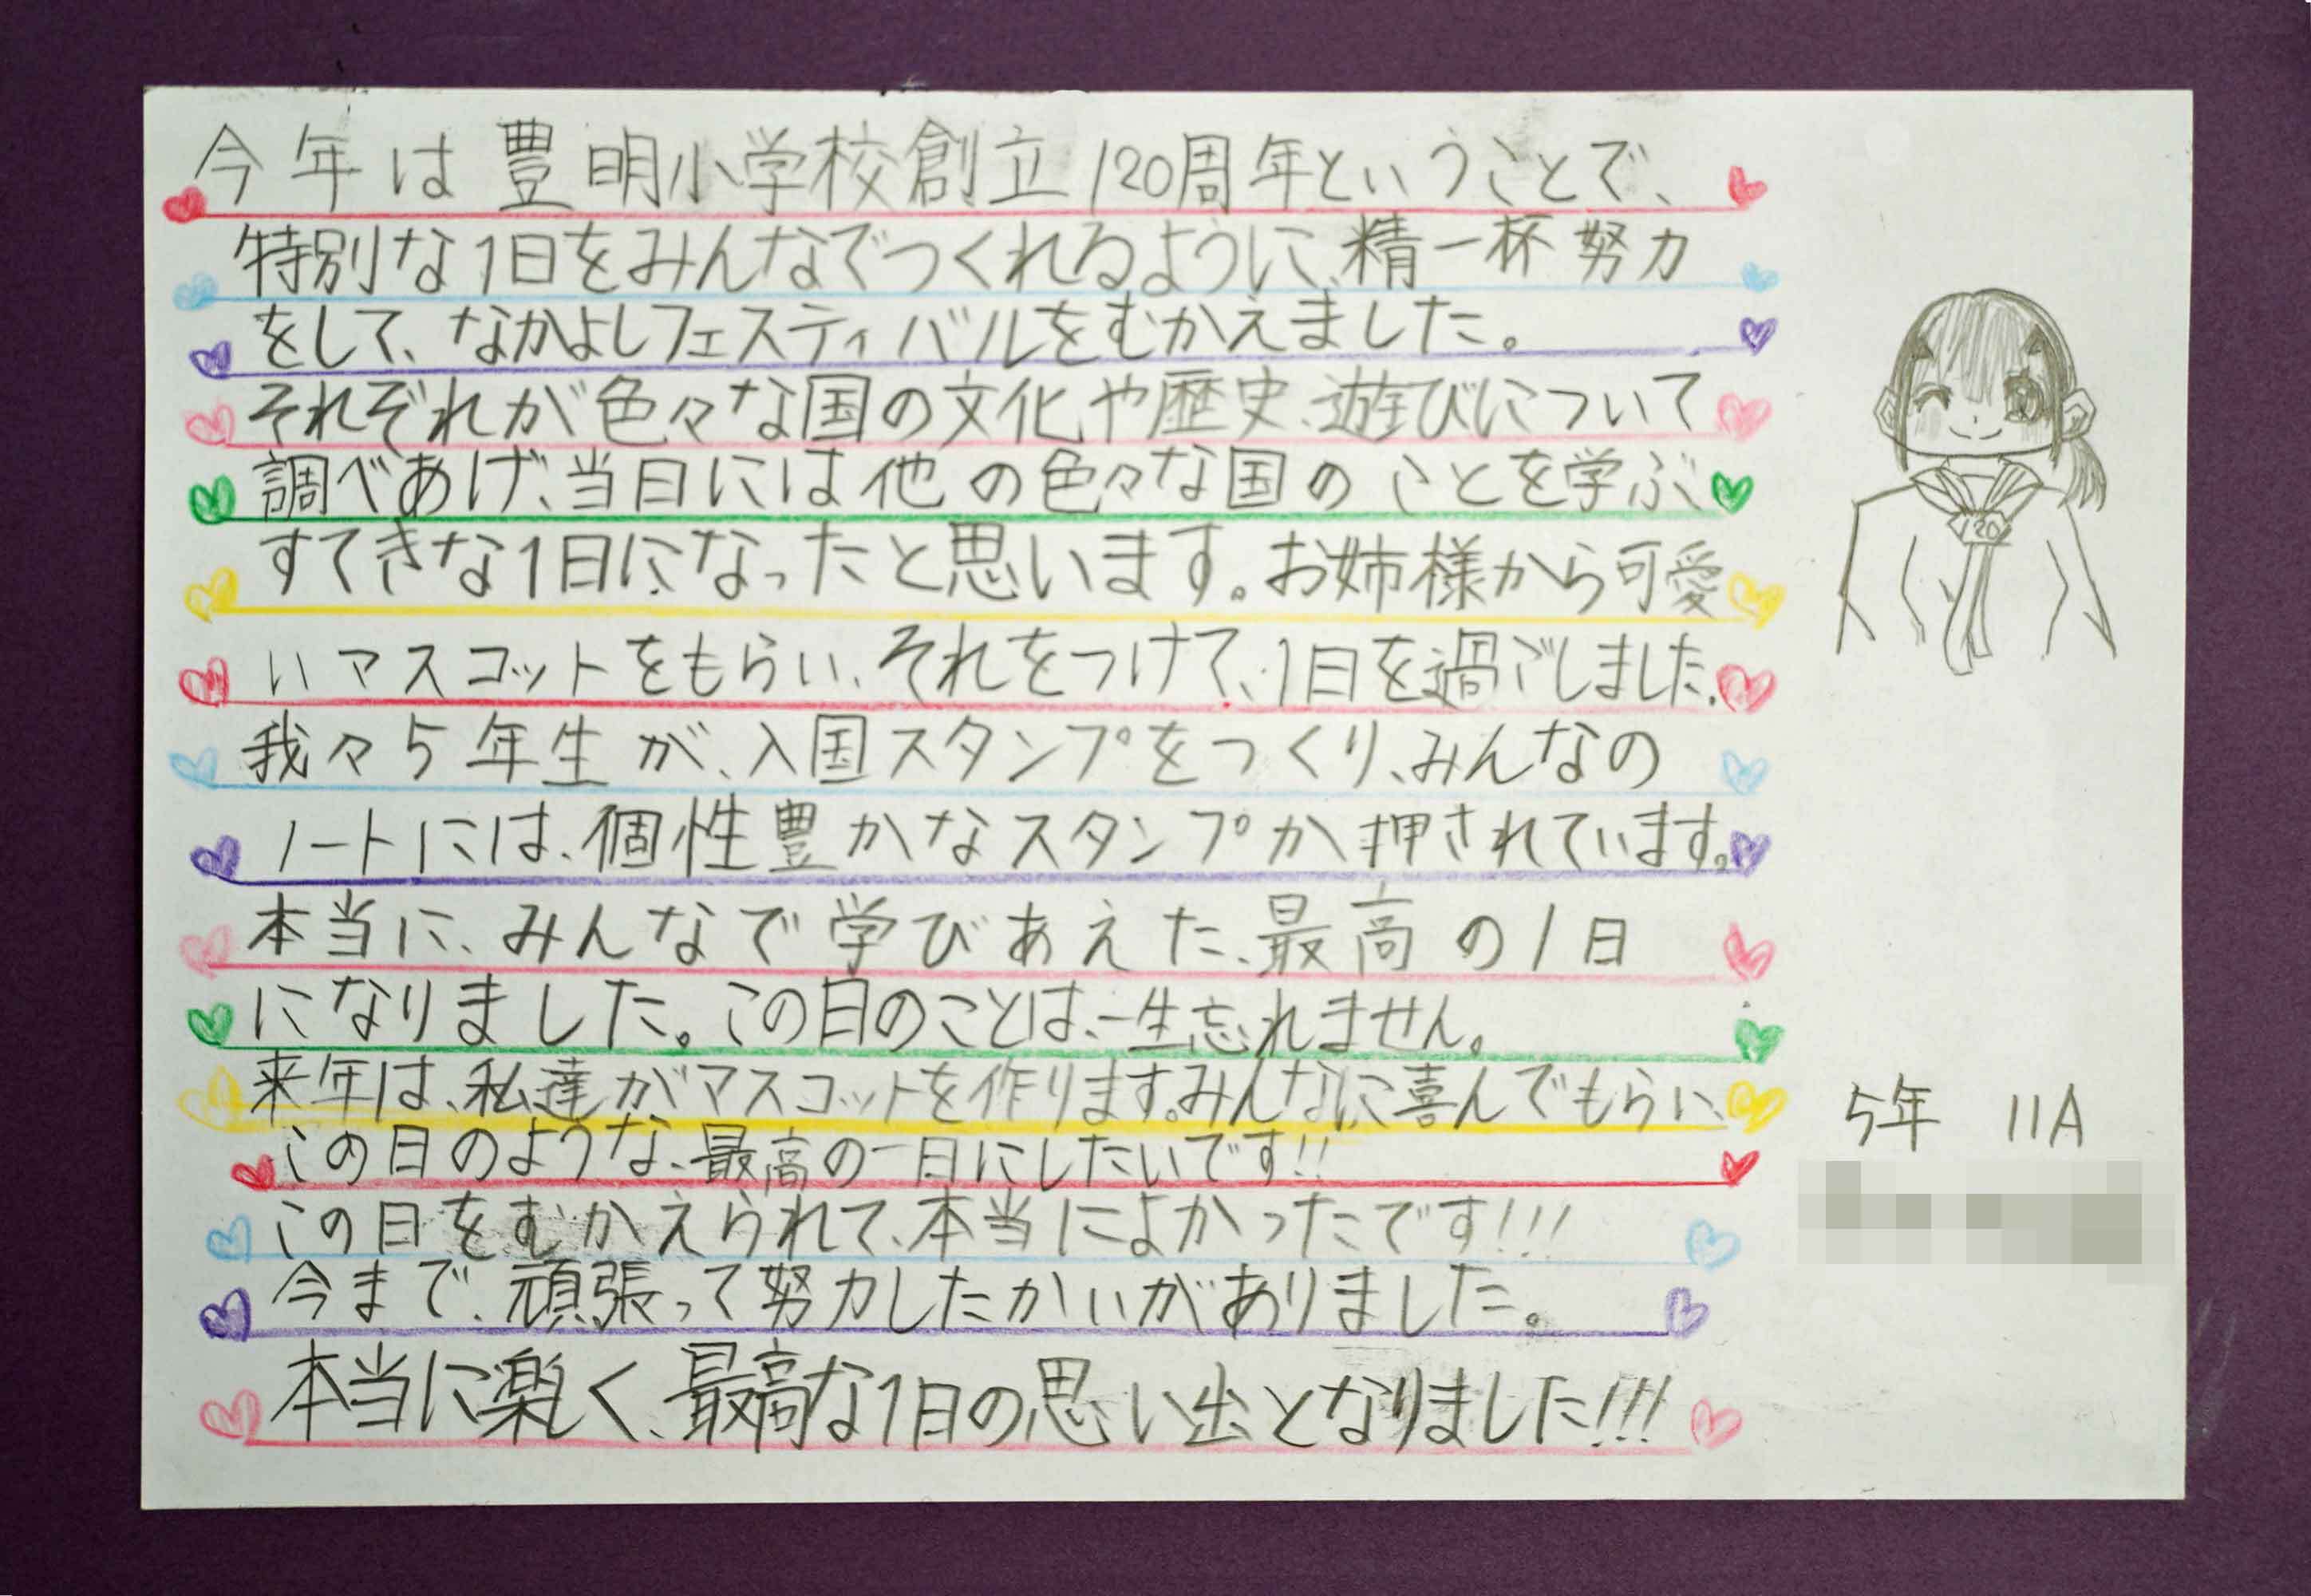 今年は豊明小学校創立120周年ということで、
特別な1日をみんなでつくれるように、精一杯努力
をして、なかよしフェスティバルをむかえました。
それぞれが色々な国の文化や歴史、遊びについて
調べあげ、当日には他の色々な国のことを学ぶ
すてきな1日になったと思います。お姉様から可愛
いマスコットをもらい、それをつけて、1日を過ごしました。
我々5年生が、入国スタンプをつくり、みんなの
ノートには、個性豊かなスタンプが押されています。
本当に、みんなで学びあえた、最高の1日
になりました。この日のことは、一生忘れません。
来年は、私達がマスコットを作ります。みんなに喜んでもらい、
この日のような、最高の一日にしたいです!!
この日をむかえられて、本当によかったです!!!
今まで、頑張って努力したかいがありました。
本当に楽しく、最高な1日の思い出となりました!!!
120
5年 11A